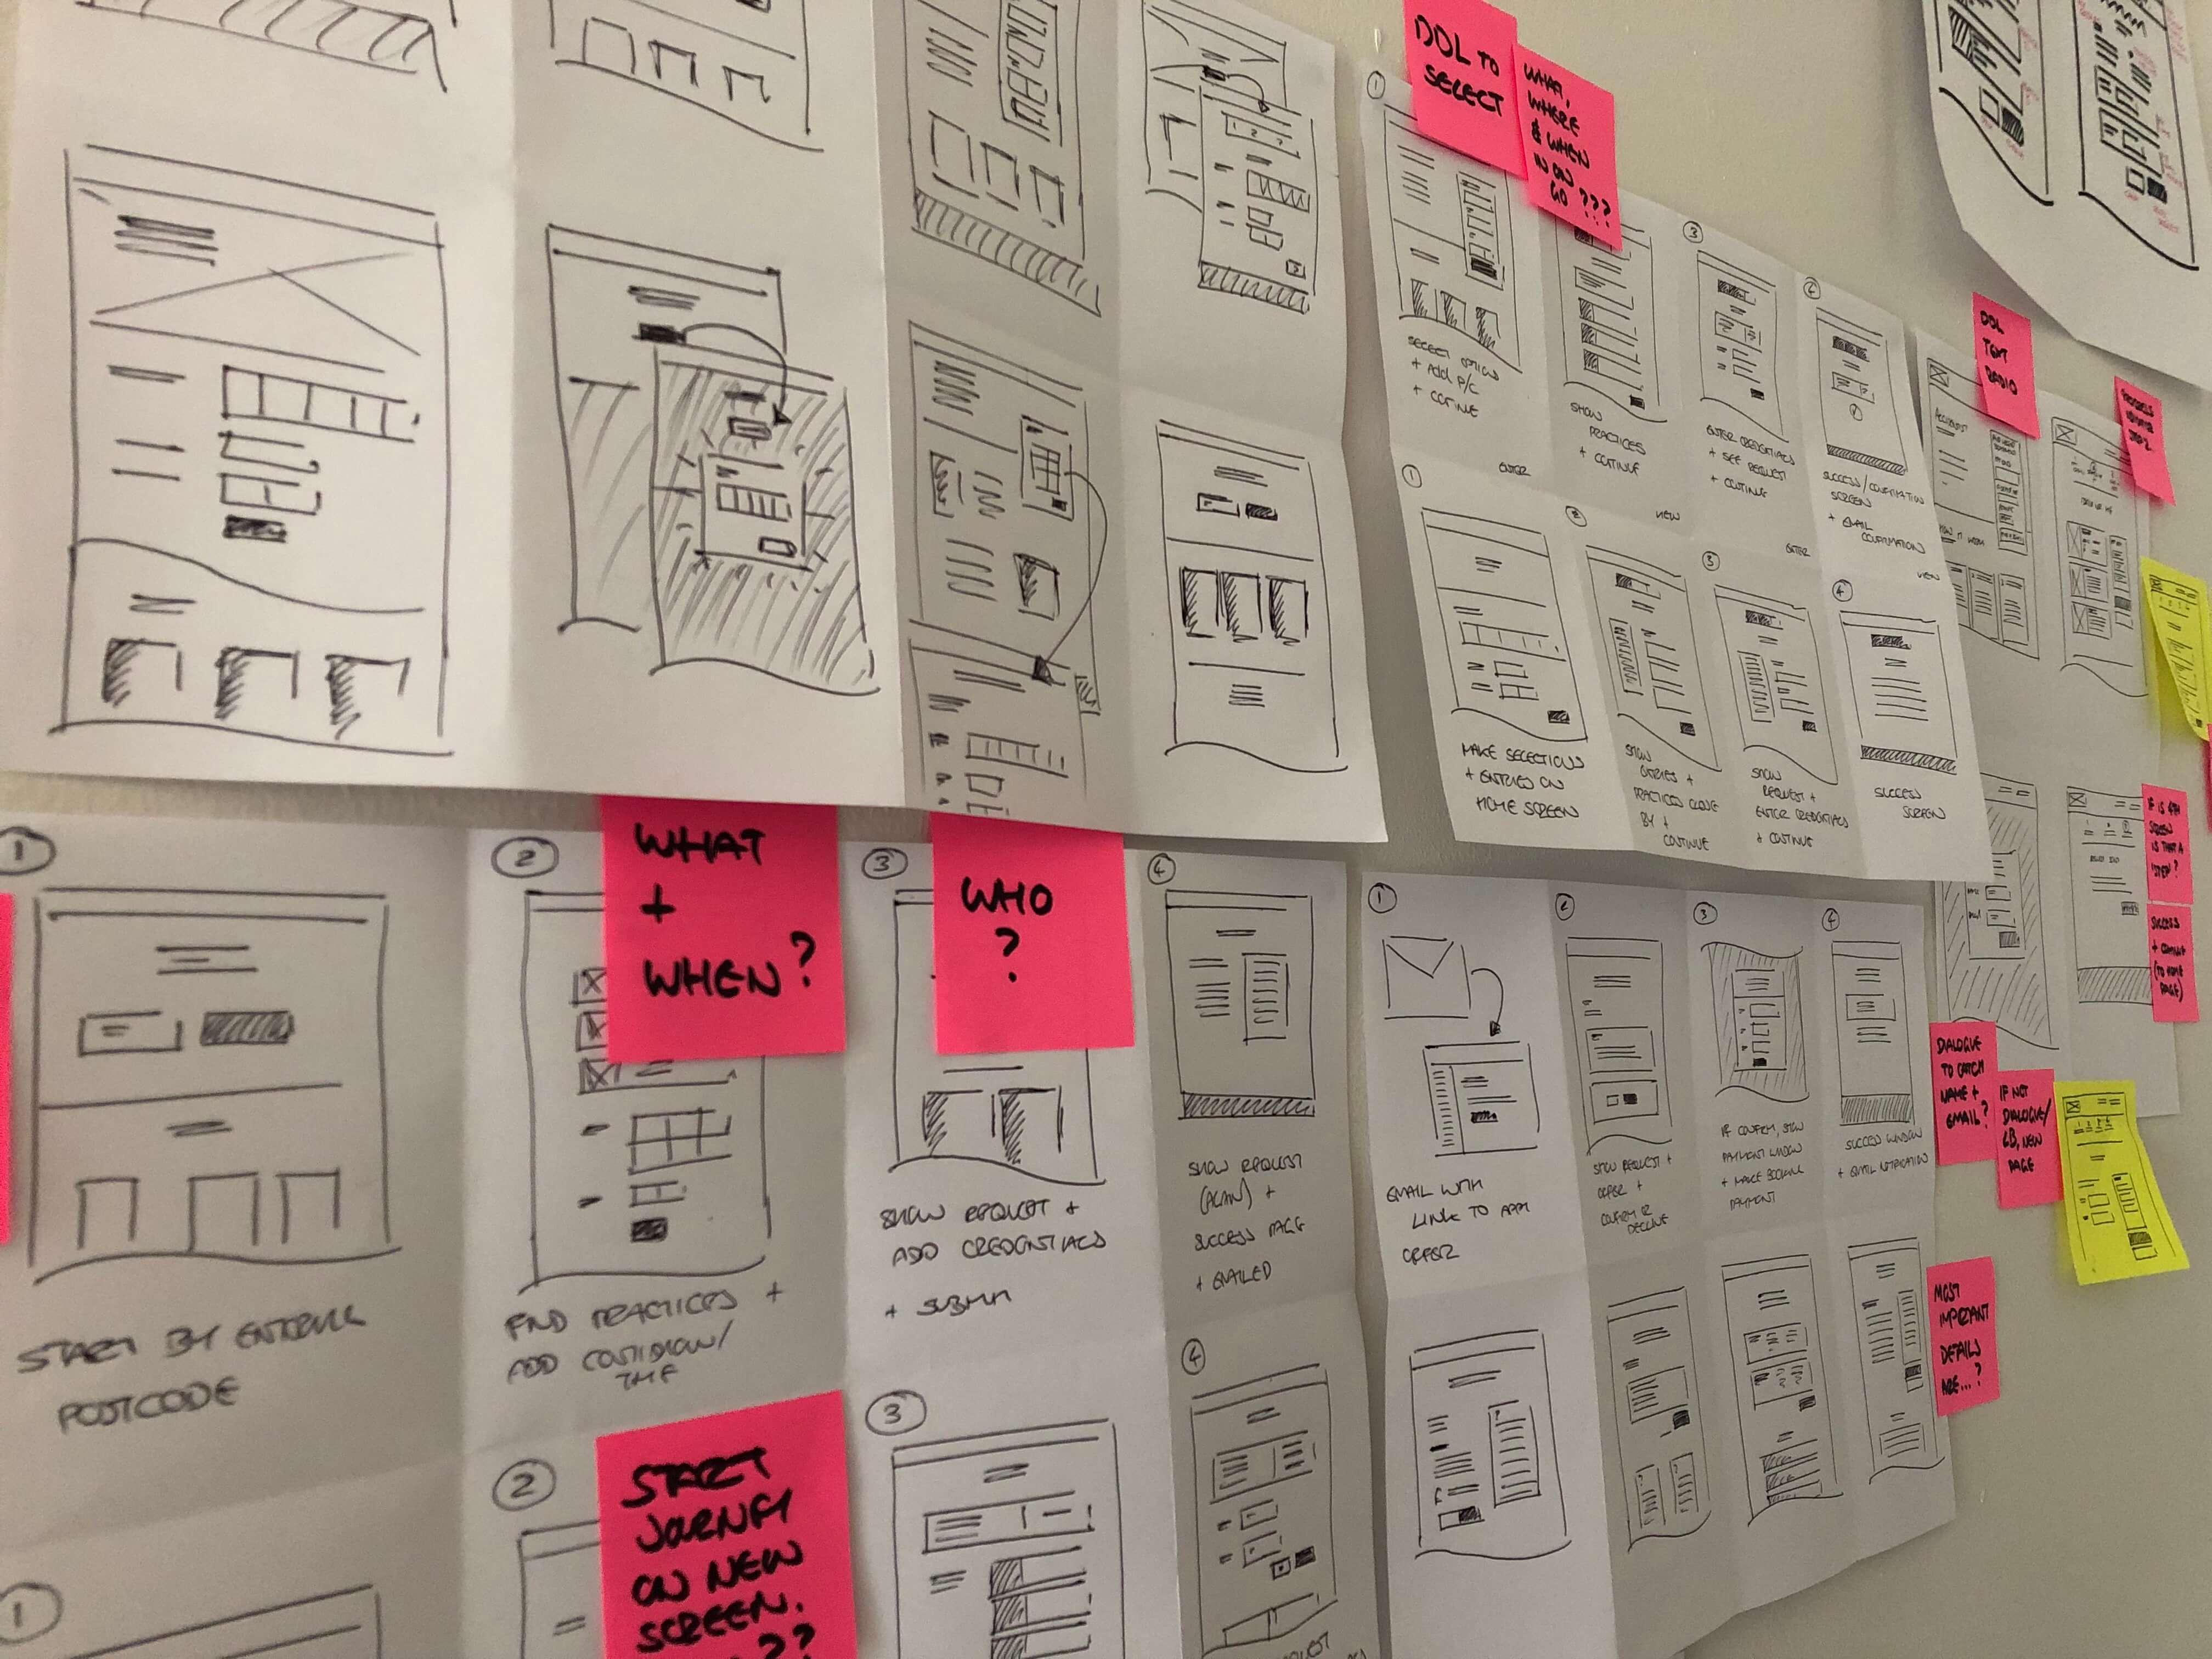 DDL TO
SELECT
WHAT,
WHERE
& WHEN
IN ON
GO ???
DDL
TEXT
RADIO
1
3
4
SELECT OPTIONS
+ Add P/C
+ COTINUE
SHOW
PRACTICES
+ COTINUE
ENTER CREDENTIALS
+ SEE REQUEST
+ COUTINUE
SUCCESS/CONFIRMATION
SCREEN
+ EMAIL
CONFIRMATION
ENTER
VIEW
ENTER
VIEW
1
2
3
4
MAKE SELECTIONS
+ ENTRIES ON
HOME SCREEN
SHOW
ENTRIES +
PRACTICES CLOSE
BY +
CONTINUE
SHOW
REQUEST +
ENTER CREDENTIALS
+ CONTINUE
SUCCESS
SCREEN
IF IS 4TH
SCREEN
IS THAT A
STEP?
SUCCESS
(TO HOME
PAGE)
1
2
WHAT
+
WHEN?
3
WHO
?
4
START BY ENTERING
POSTCODE
FIND PRACTICES +
ADD CONDITION/
TIME
SHOW REQUEST +
ADD CREDENTIALS
+ SUBMIT
SHOW REQUEST
(AGAIN) +
SUCCESS PAGE
+ EMAILED
1
2
3
4
EMAIL WITH
LINK TO APP
OFFER
SHOW REQUEST +
OFFER +
CONFIRM OR
DECLINE
IF CONFIRM, SHOW
PAYMENT WINDOW
+ MAKE BOOKING
PAYMENT
SUCCESS WINDOW
+ EMAIL NOTIFICATION
DIALOGUE
TO CATCH
NAME +
EMAIL?
IF NOT
DIALOGUE/
LB, NEW
PAGE
MOST
IMPORTANT
DETAILS
ARE...?
1
2
START
JORNEY
ON NEW
SCREEN.
??
3
4